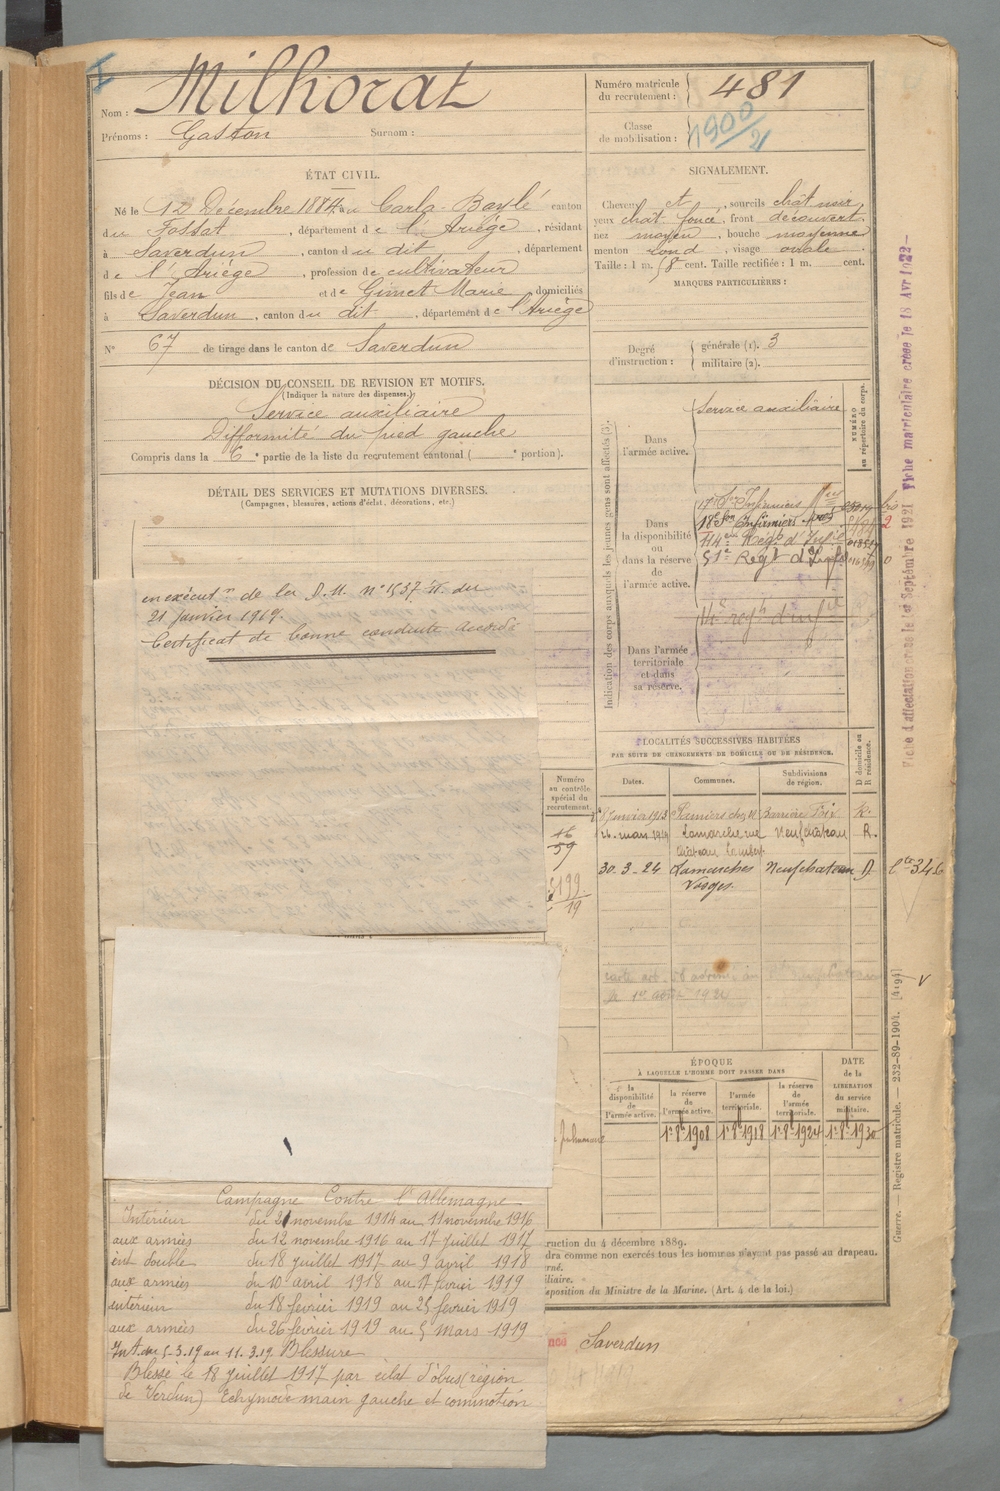 I
Nom : Milhorat
Prénoms : Gaston Surnom :
Numéro matricule du recrutement : 481
Classe de mobilisation : 1900/21
ÉTAT CIVIL.
Né le 12 Décembre 1884, à Carla-Baylé canton
du Fossat, département de l'Ariège, résidant
à Saverdun, canton du dit, département
de l'Ariège, profession de cultivateur
fils de Jean et de Gimet Marie, domiciliés
à Saverdun, canton du dit, département de l'Ariège
N° 67 de tirage dans le canton de Saverdun
SIGNALEMENT.
Cheveux et, sourcils chât noir
yeux chât foncé, front découvert,
nez moyen, bouche moyenne
menton rond, visage ovale
Taille : 1 m. cent. Taille rectifiée : 1 m. cent.
MARQUES PARTICULIÈRES :
Degré d'instruction : générale (1). 3
militaire (2).
DÉCISION DU CONSEIL DE REVISION ET MOTIFS.
(Indiquer la nature des dispenses.)
Service auxiliaire
Difformité du pied gauche
Compris dans la 6e partie de la liste du recrutement cantonal ( e portion).
DÉTAIL DES SERVICES ET MUTATIONS DIVERSES.
(Campagnes, blessures, actions d'éclat, décorations, etc.)
en exécutn de la D.M. n° 1537 du
21 Janvier 1919.
Certificat de bonne conduite accordé
Indication des corps auxquels les jeunes gens sont affectés (3).
NUMÉRO au répertoire du corps.
Dans l'armée active.
Service auxiliaire
Dans la disponibilité ou dans la réserve de l'armée active.
17e Son Infirmiers Mres
18e Son Infirmiers Mres
Regt d'Infie
51e Regt d'Infie
Dans l'armée territoriale et dans sa réserve.
14e regt d'infie
LOCALITÉS SUCCESSIVES HABITÉES
PAR SUITE DE CHANGEMENTS DE DOMICILE OU DE RÉSIDENCE.
Dates. Communes. Subdivisions de région. D domicile ou R résidence.
Janvier 1913 Pamiers chez M. Barrière Foix R.
26 mars 1919 Lamarche rue Neufchâteau R.
château Lambert
30-3-24 Lamarches Neufchateau D
Vosges.
Numéro au contrôle spécial du recrutement.
16
59
5199
19
346
V
ÉPOQUE
À LAQUELLE L'HOMME DOIT PASSER DANS
la disponibilité de l'armée active. la réserve de l'armée active. l'armée territoriale. la réserve de l'armée territoriale.
DATE de la LIBÉRATION du service militaire.
1-8bre-1908 1-8bre-1918 1-8bre-1924 1-8bre-1930
Campagne Contre l'Allemagne
Intérieur du 21 novembre 1914 au 11 novembre 1916
aux armées du 12 novembre 1916 au 17 juillet 1917
int double du 18 juillet 1917 au 9 avril 1918
aux armées du 10 avril 1918 au 17 février 1919
intérieur du 18 février 1919 au 25 février 1919
aux armées du 26 février 1919 au 5 mars 1919
Int. du 5-3.19 au 11.3.19 Blessure
Blessé le 18 juillet 1917 par éclat d'obus (région
de Verdun) Echymose main gauche et commotion
ruction du 4 décembre 1889.
dra comme non exercés tous les hommes n'ayant pas passé au drapeau.
rné.
iliaire.
sposition du Ministre de la Marine. (Art. 4 de la loi.)
Saverdun
Guerre. — Registre matricule. — 232-89-1904. [4194]
Fiche d'affectation créée le 1er Septembre 1921 Fiche matriculaire créée le 18 Avr 1922